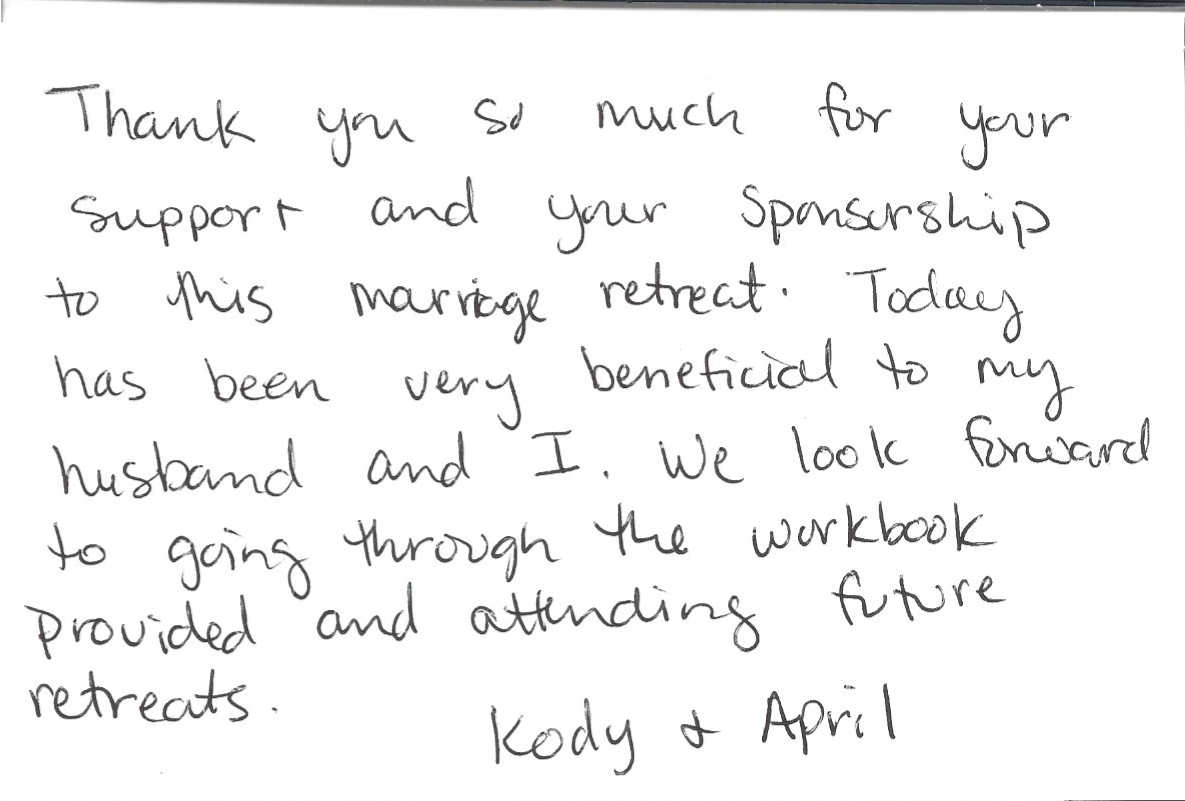 Thank you so much for your
support and your sponsorship
to this marriage retreat. Today
has been very beneficial to my
husband and I. We look forward
to going through the workbook
provided and attending future
retreats.
Kody & April